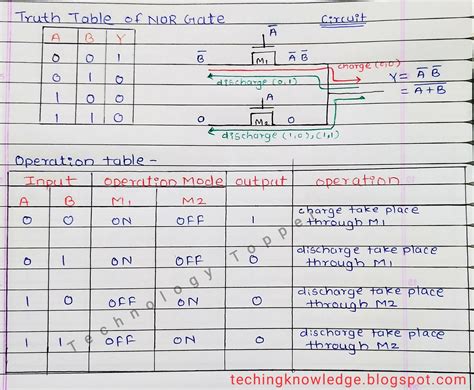 Truth Table of NOR Gate
A B Y
0 0 1
0 1 0
1 0 0
1 1 0
Circuit
A̅
B̅ M1 A̅ B̅
charge (0,0)
discharge (0,1)
A
0 M2 0
discharge (1,0),(1,1)
Y = A̅ B̅
= \overline{A+B}
Operation table -
Input operation Mode output operation
A B M1 M2
0 0 ON OFF 1 charge take place
through M1
0 1 ON OFF 0 discharge take place
through M1
1 0 OFF ON 0 discharge take place
through M2
1 1 OFF ON 0 discharge take place
through M2
Technology Topper
techingknowledge.blogspot.com